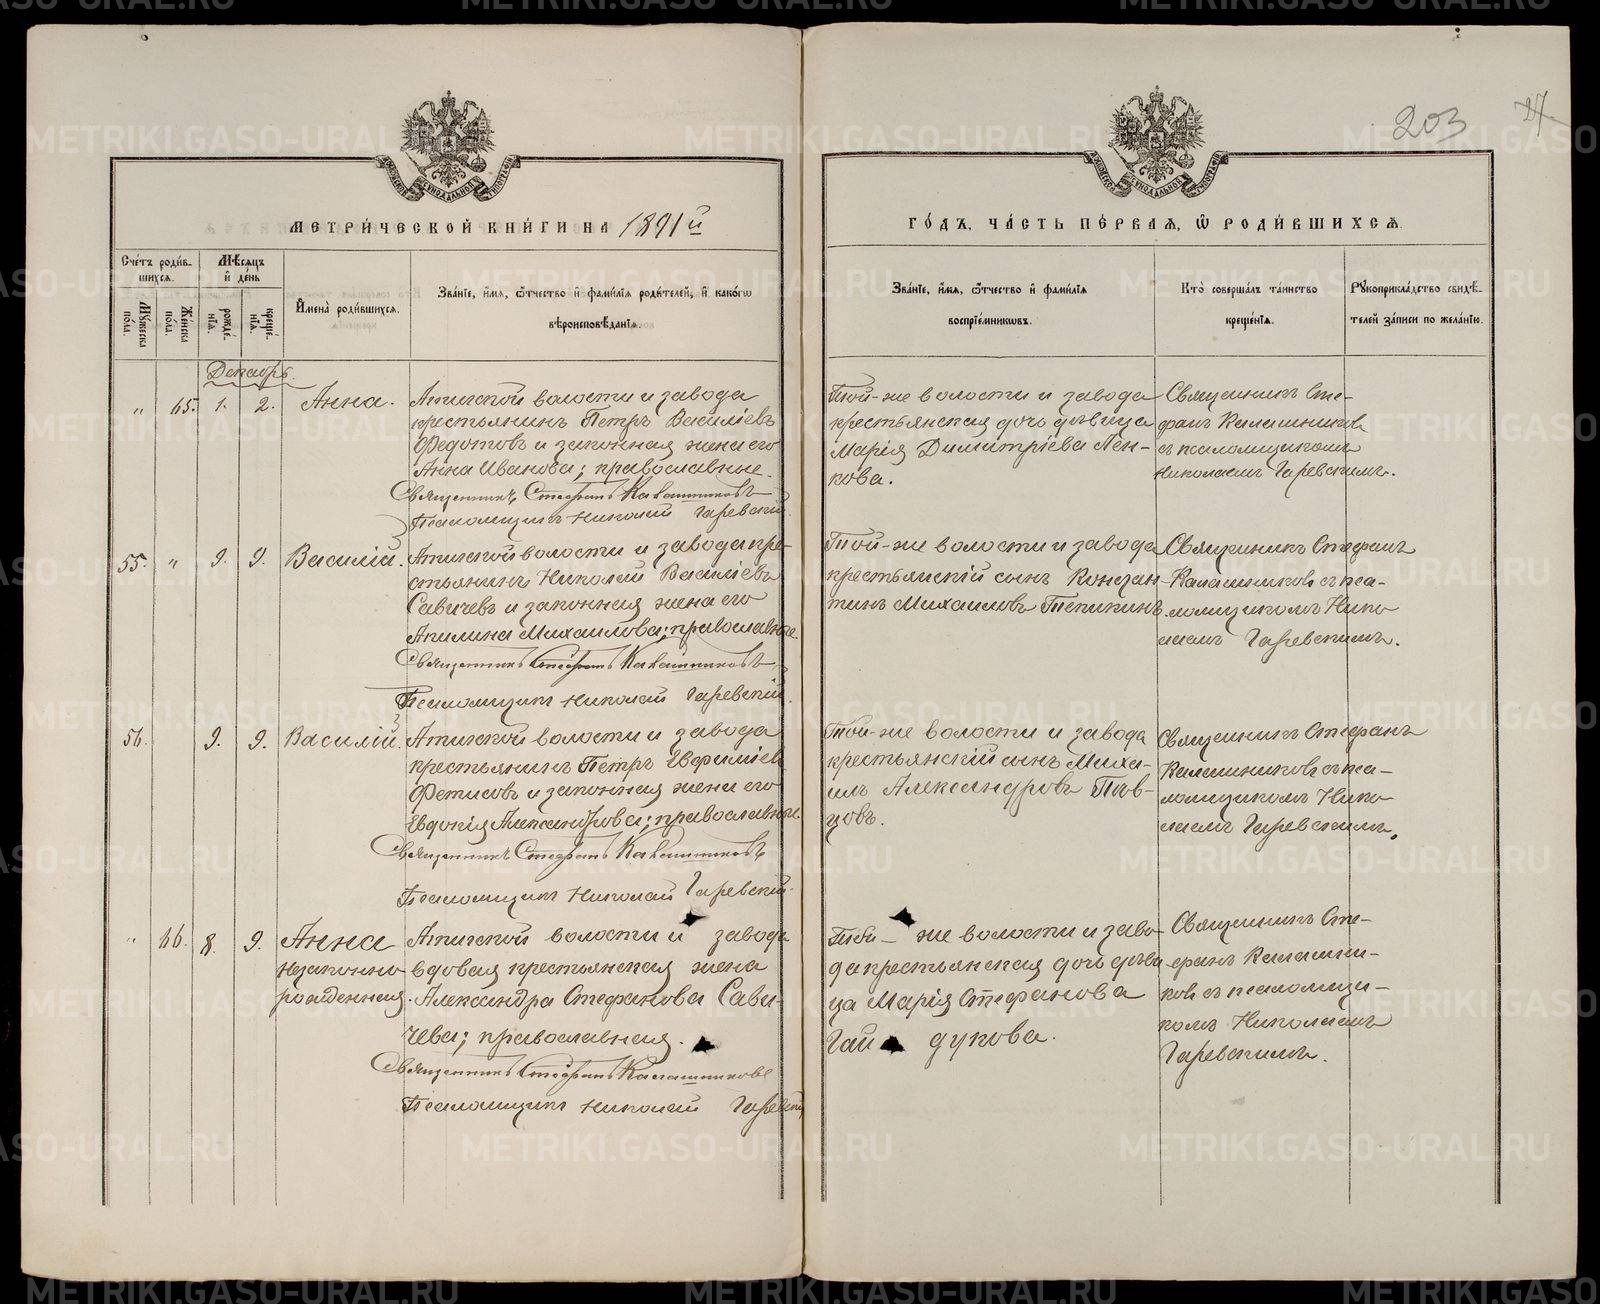 203
27
МЕТРИ́ЧЕСКОЙ КНИ́ГИ НА 1891й
ГО́ДЪ, ЧА́СТЬ ПЕ́РВАЯ, Ѿ РОДИ́ВШИХСЯ.
Сче́тъ роди́в-
шихся.
Мѣ́сяцъ
и҆ де́нь
Мꙋ́жеска
по́ла.
Же́нска
по́ла.
рожде́-
нїя.
креще́-
нїя.
И҆мена̀ роди́вшихся.
Зва́нїе, и҆́мя, ѻ҆́тчество и҆ фами́лїя роди́телей, и҆ како́гѡ
вѣроисповѣ́данїя.
Зва́нїе, и҆́мя, ѻ҆́тчество и҆ фами́лїя
воспрїе́мникѡвъ.
Кто̀ соверша́лъ та́инство
креще́нїя.
Рꙋкоприкла́дство свидѣ́-
телей за́писи по жела́нїю.
Декабрь
" 65. 1. 2. Анна.
Атигской волости и завода
крестьянинъ Петръ Василіевъ
Федотовъ и законная жена его
Анна Иванова; православные.
Священникъ Стефанъ Калашниковъ
Псаломщикъ Николай Гаревскій.
Той-же волости и завода
крестьянская дочь дѣвица
Марія Димитріева Пен-
кова.
Священникъ Сте-
фанъ Калашниковъ
съ псаломщикомъ
Николаемъ Гаревскимъ.
55. " 9. 9. Василій.
Атигской волости и завода кре-
стьянинъ Николай Василіевъ
Савичевъ и законная жена его
Апилина Михаилова; православные.
Священникъ Стефанъ Калашниковъ
Псаломщикъ Николай Гаревскій.
Той-же волости и завода
крестьянскій сынъ Констан-
тинъ Михаиловъ Тепикинъ.
Священникъ Стефанъ
Калашниковъ съ пса-
ломщикомъ Нико-
лаемъ Гаревскимъ.
56. 9. 9. Василій.
Атигской волости и завода
крестьянинъ Петръ Евфиміевъ
Фетисовъ и законная жена его
Евдокія Александрова; православные.
Священникъ Стефанъ Калашниковъ
Псаломщикъ Николай Гаревскій.
Той-же волости и завода
крестьянскій сынъ Миха-
илъ Александровъ Пѣв-
цовъ.
Священникъ Стефанъ
Калашниковъ съ пса-
ломщикомъ Нико-
лаемъ Гаревскимъ.
" 66. 8. 9. Анна
незаконно-
рожденная.
Атигской волости и завода
вдовая крестьянская жена
Александра Стефанова Сави-
чева; православная.
Священникъ Стефанъ Калашниковъ
Псаломщикъ Николай Гаревскій
Той-же волости и заво-
да крестьянская дочь дѣви-
ца Марія Стефанова
Гайдукова.
Священникъ Сте-
фанъ Калашни-
ковъ съ псаломщи-
комъ Николаемъ
Гаревскимъ.
METRIKI.GASO-URAL.RU